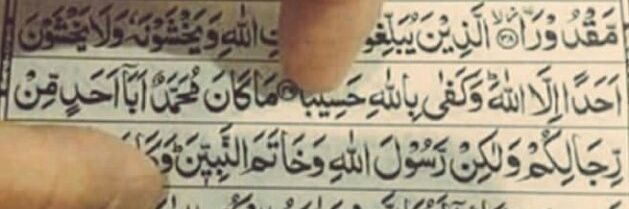 مَّقْدُوْرَا ۙ﴿۳۸﴾ الَّذِيْنَ يُبَلِّغُوْ نِ اللّٰهِ وَيَخْشَوْنَهٗ وَلَا يَخْشَوْنَ
اَحَدًا اِلَّا اللّٰهَ ؕ وَكَفٰى بِاللّٰهِ حَسِيْبًا مَا كَانَ مُحَمَّدٌ اَبَاۤ اَحَدٍ مِّنْ
رِّجَالِكُمْ وَلٰكِنْ رَّسُوْلَ اللّٰهِ وَخَاتَمَ النَّبِيّٖنَ ؕ